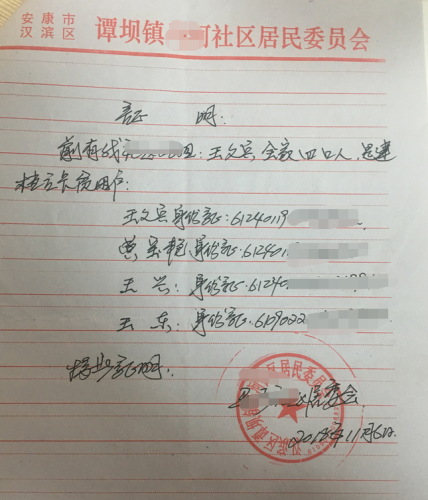 安康市
汉滨区 谭坝镇 河社区居民委员会
证 明
兹有我 组：王文宾，全家四口人，是建
档立卡贫困户：
王文宾身份证：6124019
黄 艳身份证：612401
王兴：身份证：61240
王东：身份证：6129022
特此证明。
居委会
2018年11月6日